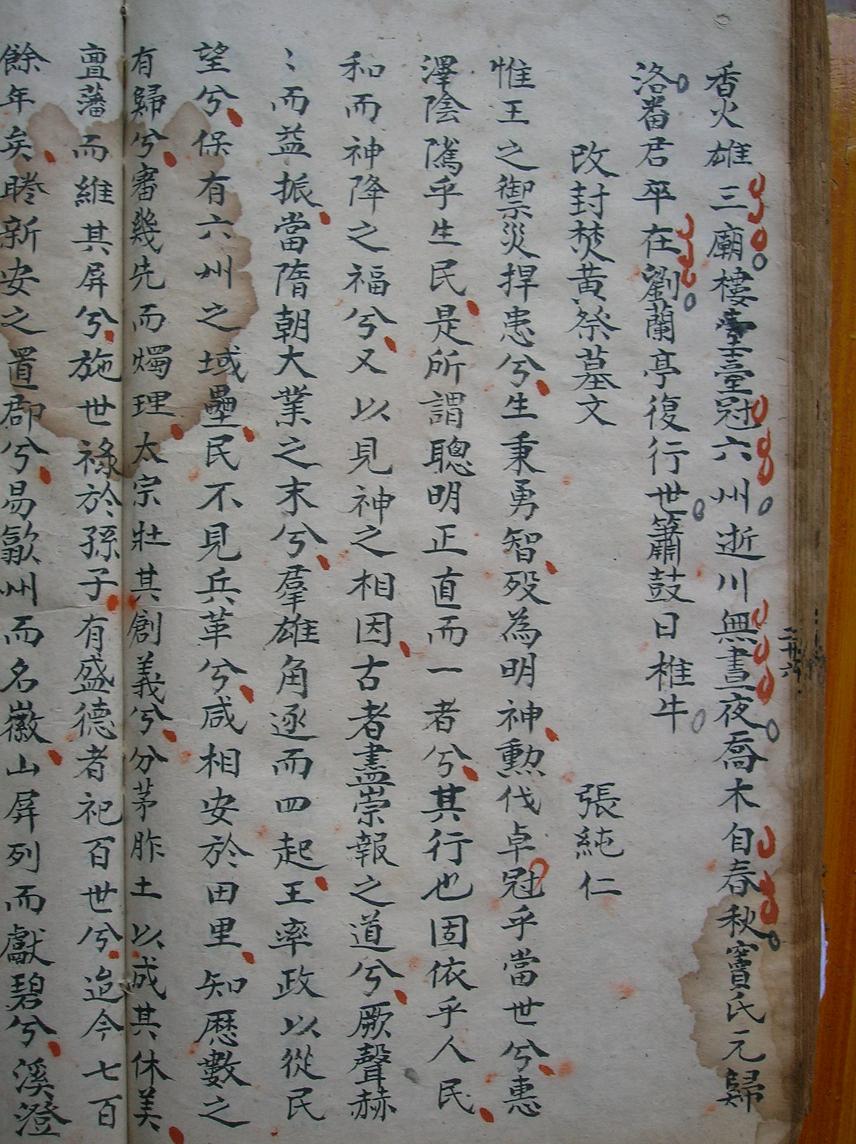 香火雄三廟樓臺冠六州逝川無晝夜喬木自春秋竇氏元歸
洛番君卒在劉蘭亭復行世簫鼓日椎牛
改封焚黃祭墓文
張純仁
惟王之禦災捍患兮生秉勇智殁為明神勲伐卓冠乎當世兮惠
澤陰隲乎生民是所謂聰明正直而一者兮其行也固依乎人民
和而神降之福兮又以見神之相因古者盡崇報之道兮厥聲赫
〻而益振當隋朝大業之末兮羣雄角逐而四起王率政以從民
望兮保有六州之域壘民不見兵革兮咸相安於田里知歷數之
有歸兮審幾先而燭理太宗壯其創義兮分茅胙土以成其休美
亶藩而維其屏兮施世祿於孫子有盛德者祀百世兮迨今七百
餘年矣睠新安之置郡兮易歙州而名徽山屏列而獻碧兮溪澄